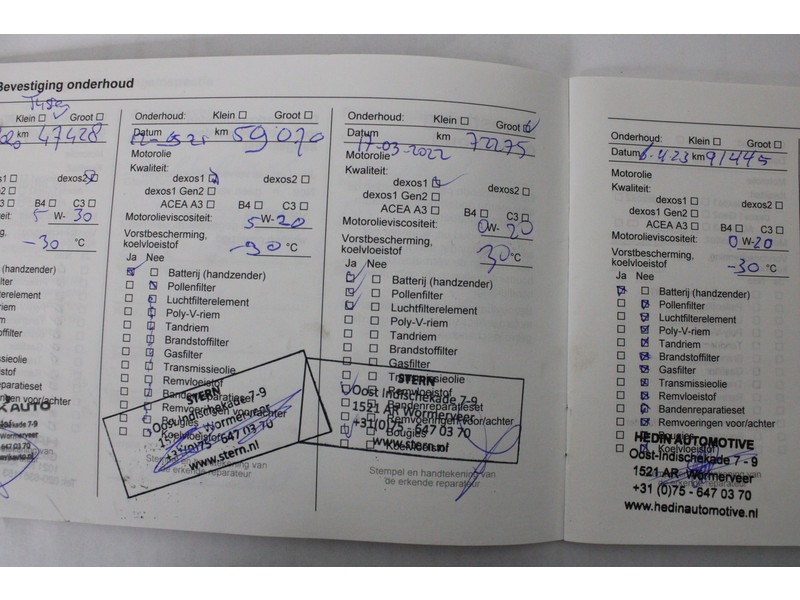 Bevestiging onderhoud
Klein Groot
km 47428
dexos2
B4 C3
5 W- 30
-30 °C
Onderhoud: Klein Groot
Datum km 59070
Motorolie
Kwaliteit:
dexos1 dexos2
dexos1 Gen2
ACEA A3 B4 C3
Motorolieviscositeit: 5 W-20
Vorstbescherming,
koelvloeistof -30 °C
Ja Nee
Batterij (handzender)
Pollenfilter
Luchtfilterelement
Poly-V-riem
Tandriem
Brandstoffilter
Gasfilter
Transmissieolie
Remvloeistof
STERN
Oost-Indischekade 7-9
+31(0)75 - 647 03 70
www.stern.nl
de erkende reparateur
Onderhoud: Klein Groot
Datum 17-03-2022 km 72275
Motorolie
Kwaliteit:
dexos1 dexos2
dexos1 Gen2
ACEA A3 B4 C3
Motorolieviscositeit: 0 W- 20
Vorstbescherming,
koelvloeistof 30 °C
Ja Nee
Batterij (handzender)
Pollenfilter
Luchtfilterelement
Poly-V-riem
Tandriem
Brandstoffilter
Gasfilter
Transmissieolie
Remvloeistof
Bandenreparatieset
Remvoeringen voor/achter
Bougies
Koelvloeistof
STERN
Oost Indischekade 7-9
1521 AR Wormerveer
+31(0)75 - 647 03 70
www.stern.nl
Stempel en handtekening van
de erkende reparateur
Onderhoud: Klein Groot
Datum 6-4-23 km 91445
Motorolie
Kwaliteit:
dexos1 dexos2
dexos1 Gen2
ACEA A3 B4 C3
Motorolieviscositeit: 0 W-20
Vorstbescherming,
koelvloeistof -30 °C
Ja Nee
Batterij (handzender)
Pollenfilter
Luchtfilterelement
Poly-V-riem
Tandriem
Brandstoffilter
Gasfilter
Transmissieolie
Remvloeistof
Bandenreparatieset
Remvoeringen voor/achter
Koelvloeistof
HEDIN AUTOMOTIVE
Oost-Indischekade 7 - 9
1521 AR Wormerveer
+31 (0)75 - 647 03 70
www.hedinautomotive.nl